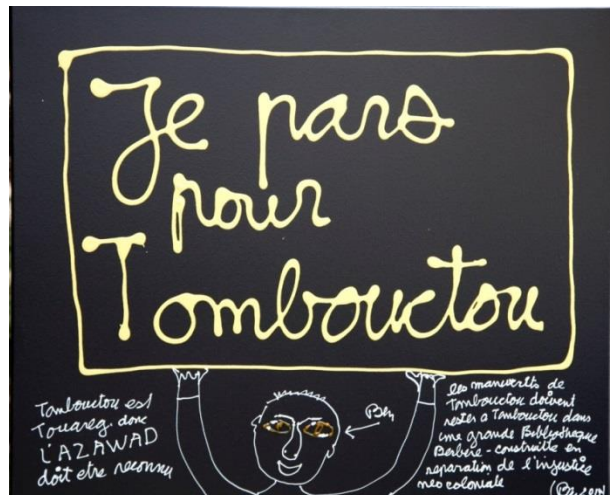 Je pars
pour
Tombouctou
Tombouctou est
Touareg donc
L'AZAWAD
doit etre reconnu
Ben
les manuscrits de
Tombouctou doivent
rester a Tombouctou dans
une grande Bibliotheque
Berbère - construite en
reparation de l'injustice
neo coloniale